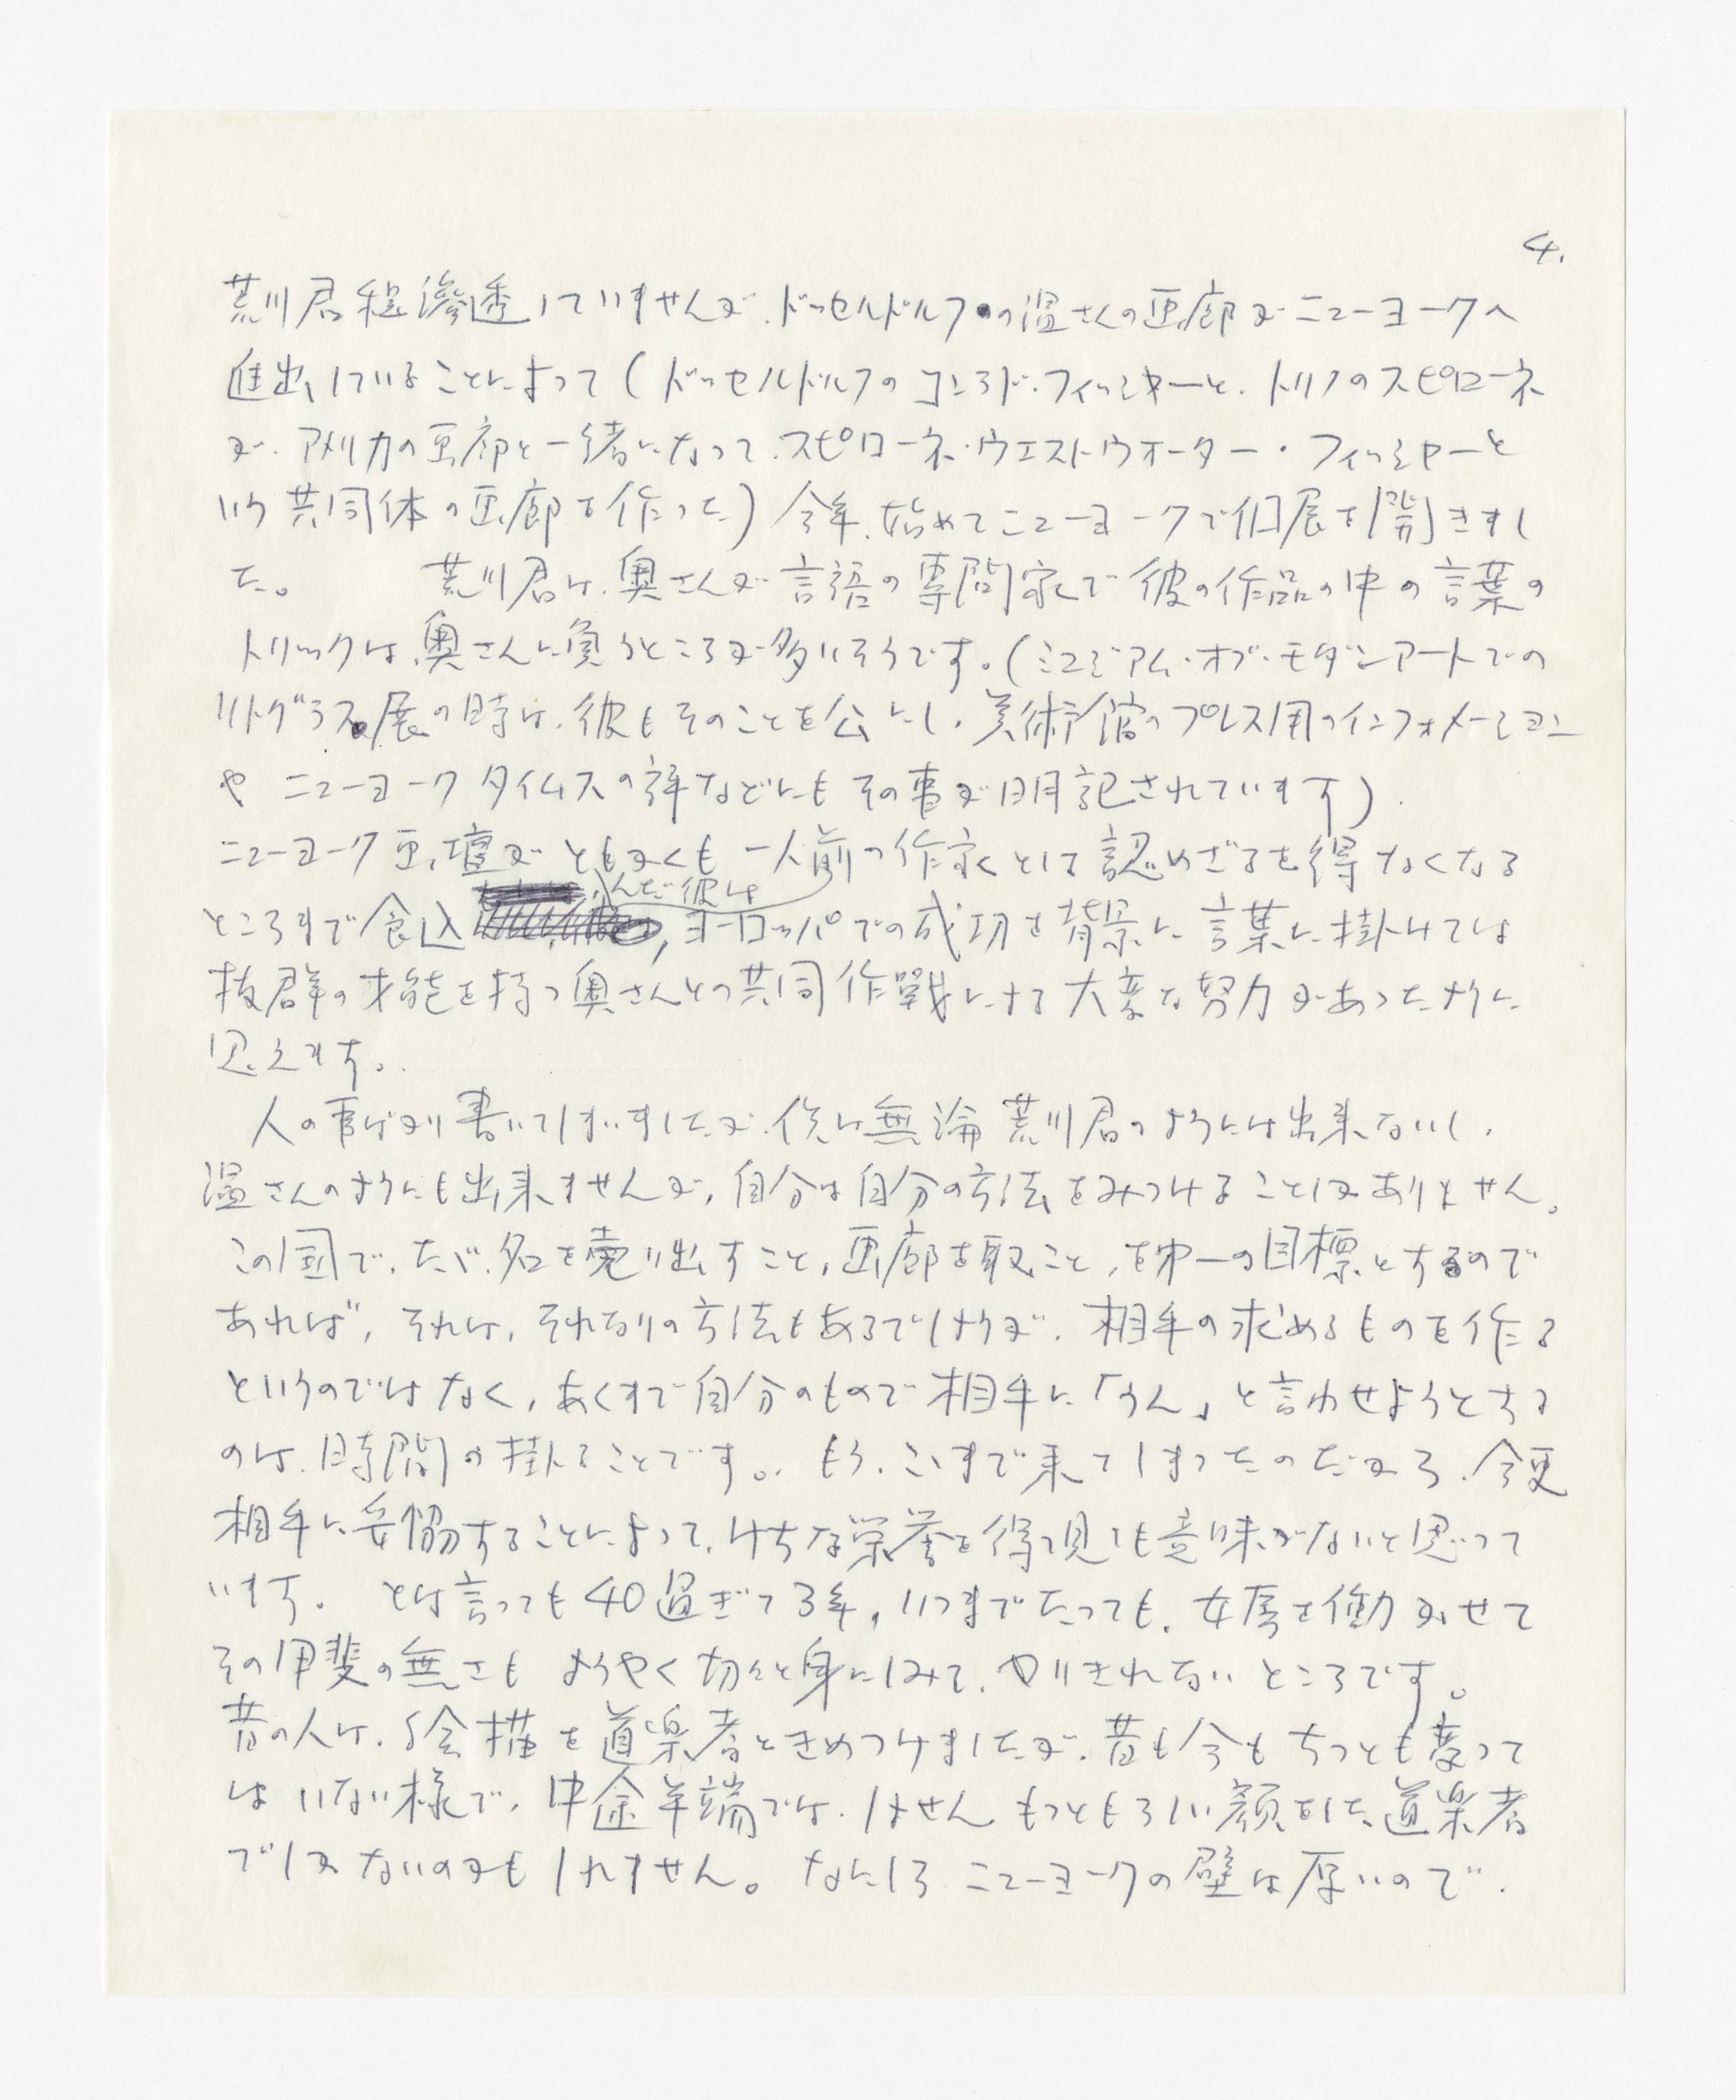 4.
荒川君程滲透していませんが、ドッセルドルフの温さんの画廊がニューヨークへ
進出していることによって(ドッセルドルフのコンラド・フィッシャーと、トリノのスピローネ
が、アメリカの画廊と一緒になって、スピローネ・ウエストウオーター・フィッシャーと
いう共同体の画廊を作った)今年、始めてニューヨークで個展を開きまし
た。 荒川君は、奥さんが言語の専門家で彼の作品の中の言葉の
トリックは、奥さんに負うところが多いそうです。(ミュージアム・オブ・モダンアートでの
リトグラフ展の時は、彼もそのことを公にし、美術館のプレス用のインフォメーション
や ニューヨークタイムスの評などにもその事が明記されています)。
ニューヨーク画壇がともかくも一人前の作家として認めざるを得なくなる
ところまで食込んだ彼は、ヨーロッパでの成功を背景に言葉に掛けては
抜群の才能を持つ奥さんとの共同作戦による大変な努力があったように
思えます。
人の事ばかり書いてしまいましたが、僕は無論荒川君のようには出来ないし、
温さんのようにも出来ませんが、自分は自分の方法をみつけることしかありません。
この国で、ただ、名を売り出すこと、画廊を取こと、を第一の目標とするので
あれば、それは、それなりの方法もあるでしょうが、相手の求めるものを作る
というのではなく、あくまで自分のもので相手に「うん」と言わせようとする
のは、時間の掛ることです。もう、こゝまで来てしまったのだから、今更
相手に妥協することによって、けちな栄誉を得て見ても意味がないと思って
います。 とは言っても40過ぎて3年、いつまでたっても、女房を働かせて
その甲斐の無さもようやく切々と身にしみて、やりきれないところです。
昔の人は、絵描を道楽者ときめつけましたが、昔も今もちっとも変って
はいない様で、中途半端では、しょせんもっともらしい顔をした道楽者
でしかないのかもしれません。なにしろニューヨークの壁は厚いので、